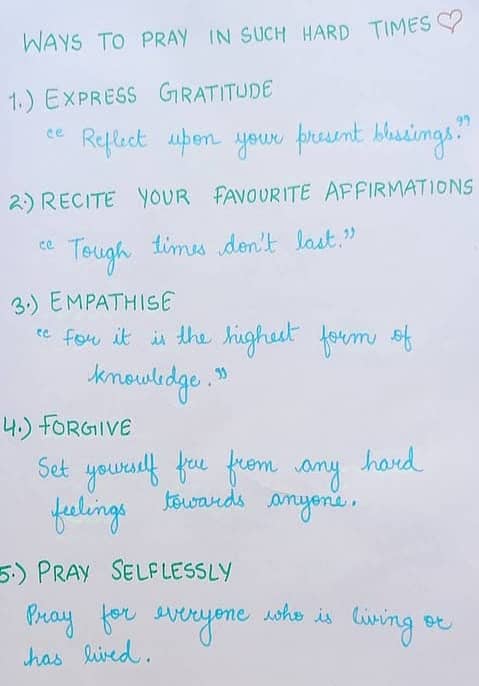 WAYS TO PRAY IN SUCH HARD TIMES ♡
1.) EXPRESS GRATITUDE
“ Reflect upon your present blessings.”
2.) RECITE YOUR FAVOURITE AFFIRMATIONS
“ Tough times don't last.”
3.) EMPATHISE
“ For it is the highest form of
knowledge.”
4.) FORGIVE
Set yourself free from any hard
feelings towards anyone.
5.) PRAY SELFLESSLY
Pray for everyone who is living or
has lived.